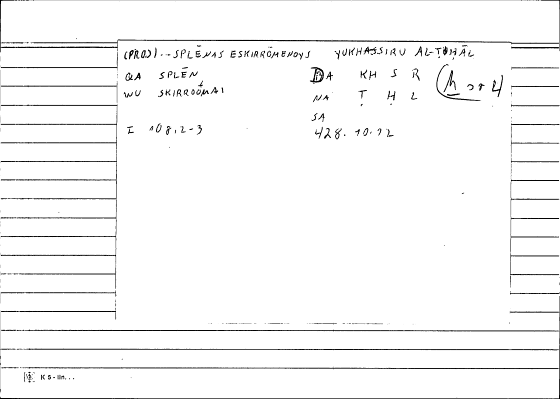 (PROS)... SPLĒNAS ESKIRRŌMENOYS YUKHASSIRU AL-ṬUḤĀL
QA SPLĒN DA KH S R
WU SKIRROŌMAI NA Ṭ Ḥ L
SA
I 108,2-3 428.10.12
K 5 - lin...